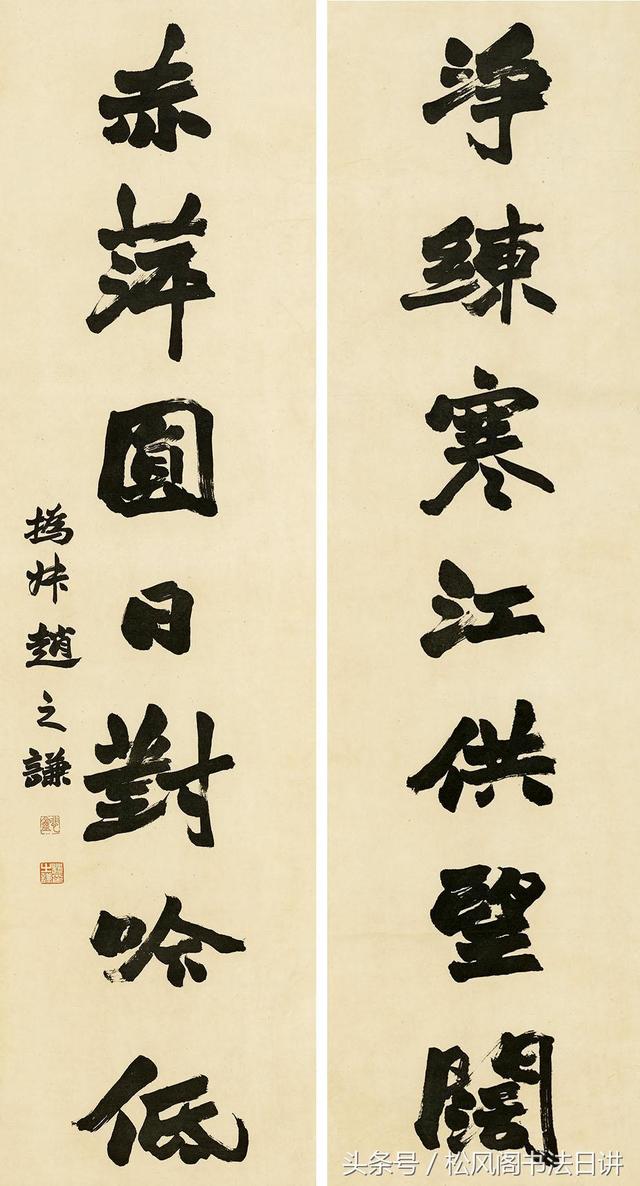 淨練寒江供望闊
赤萍圓日對吟低
撝叔趙之謙
头条号 / 松风阁书法日讲